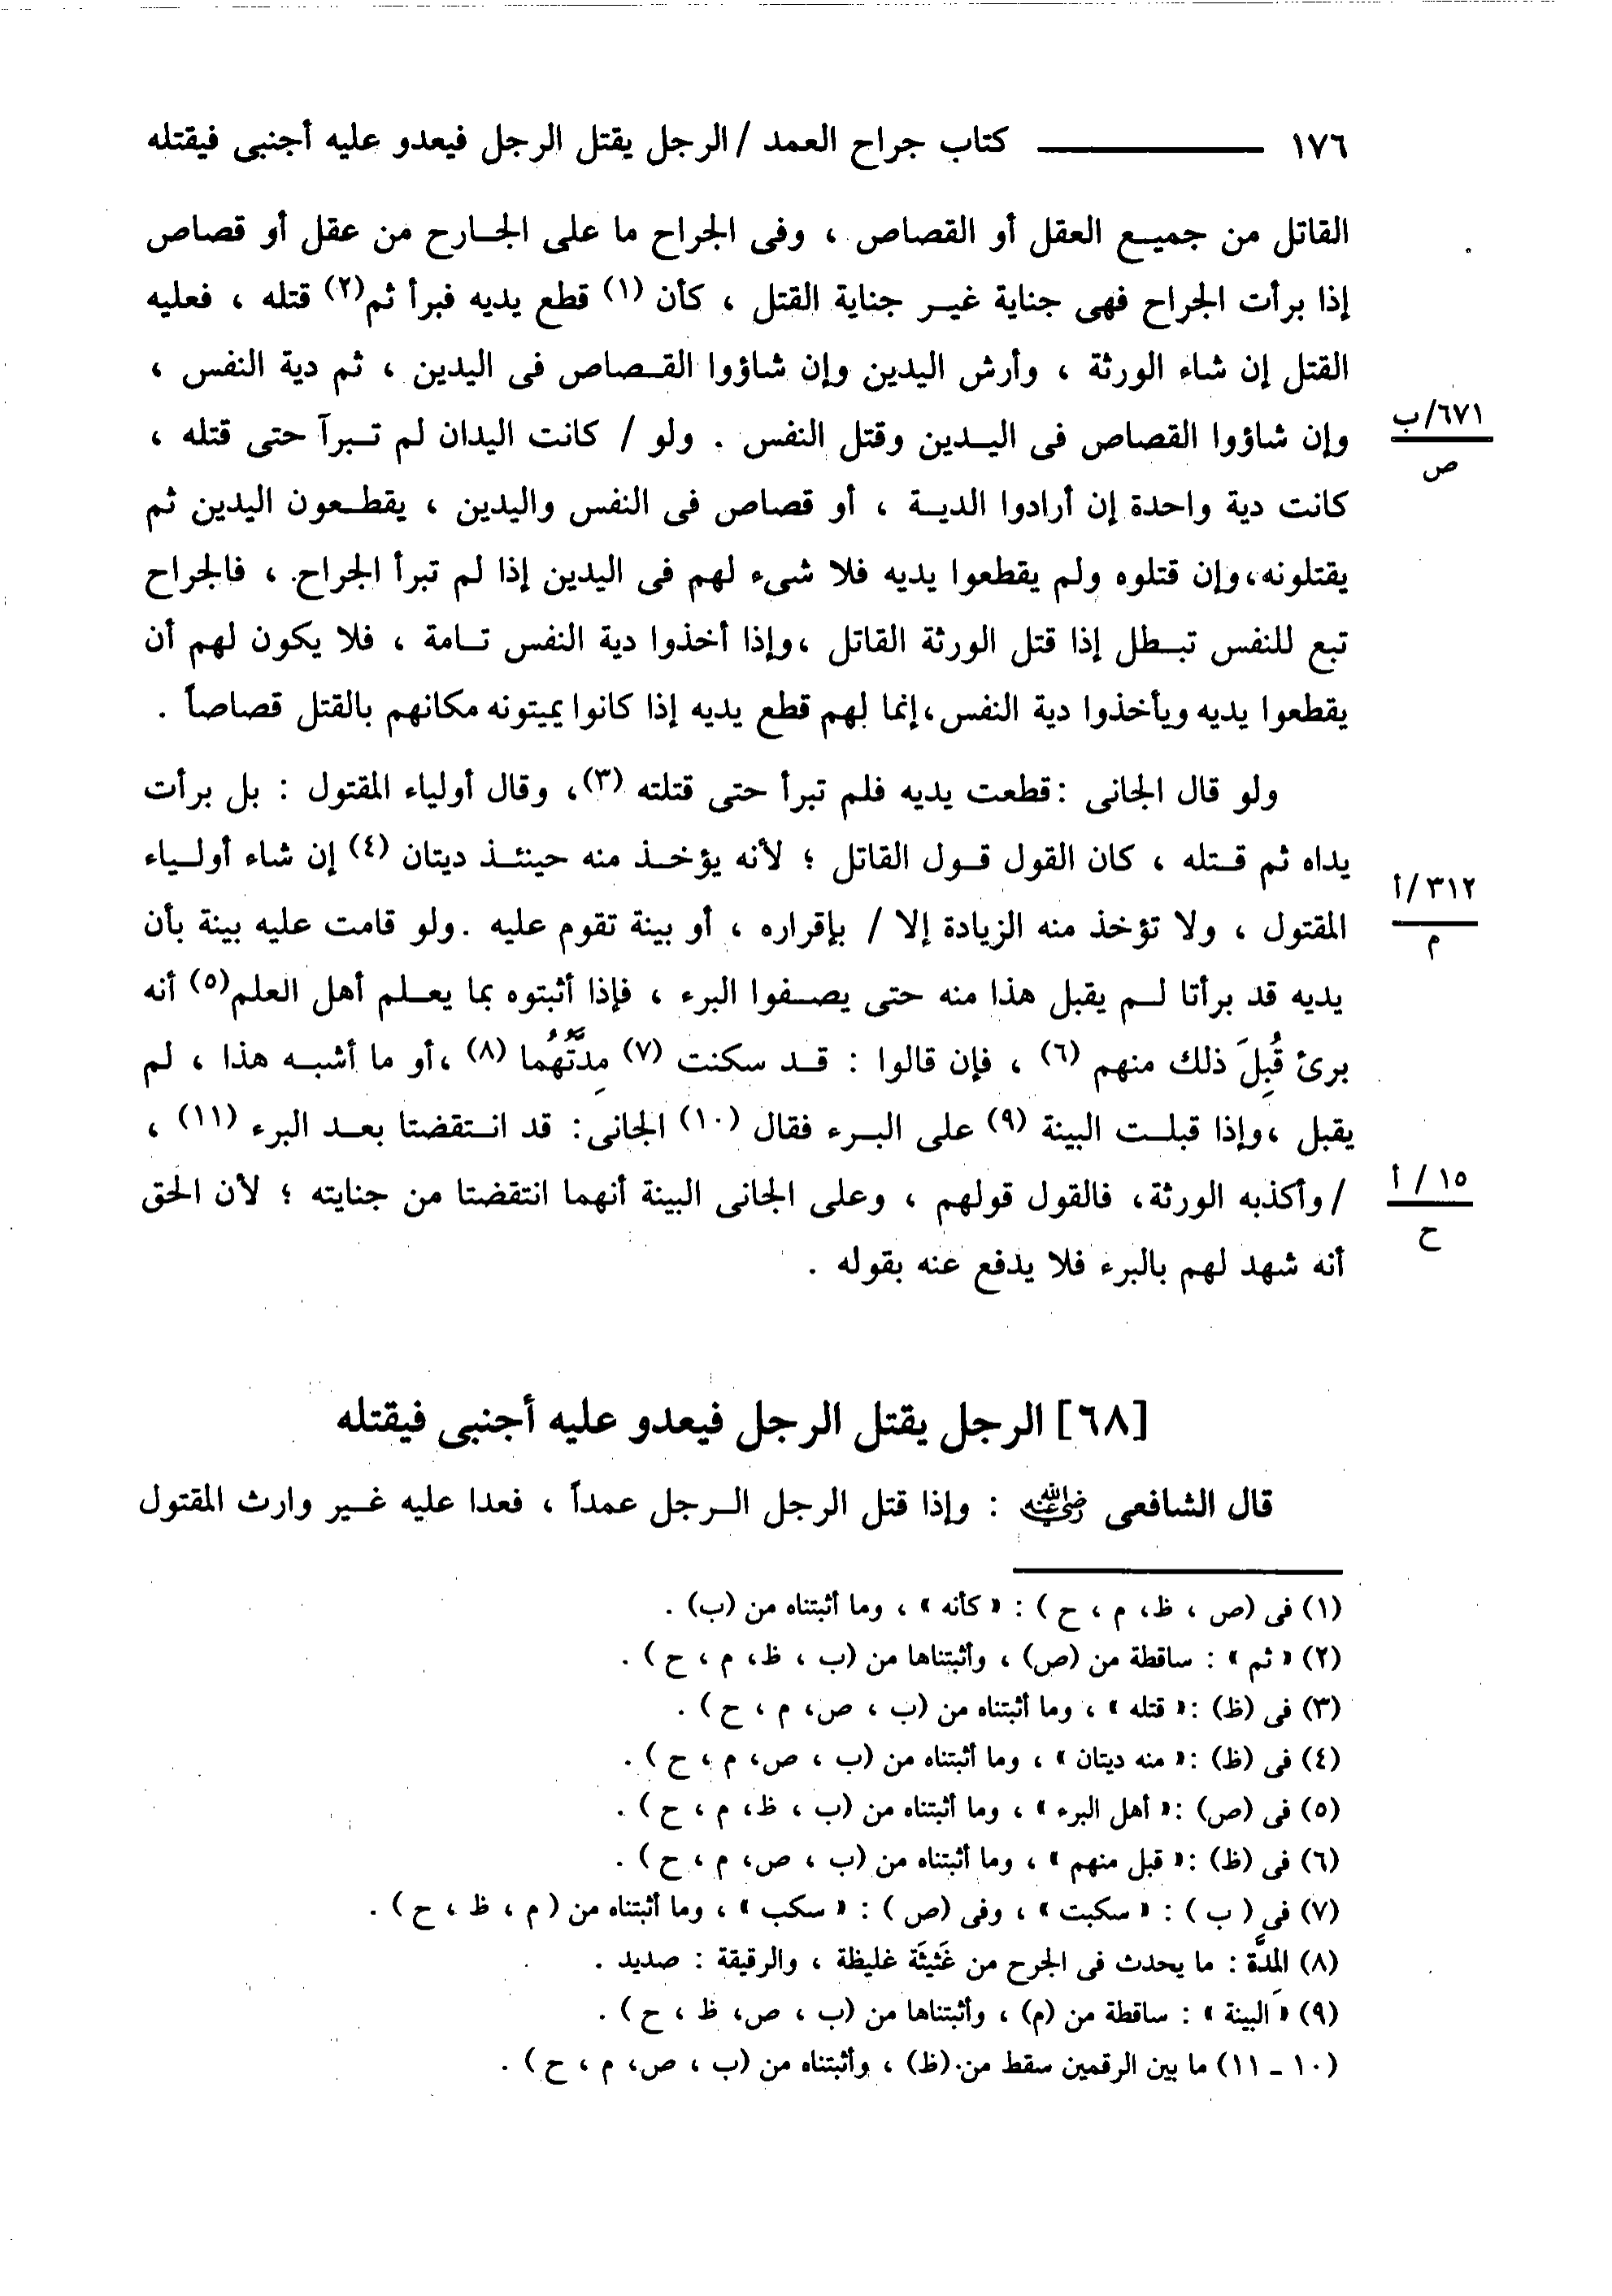 ١٧٦ ـــــــــــ كتاب جراح العمد / الرجل يقتل الرجل فيعدو عليه أجنبى فيقتله
القاتل من جميع العقل أو القصاص ، وفى الجراح ما على الجارح من عقل أو قصاص
إذا برأت الجراح فهى جناية غير جناية القتل ، كأن (١) قطع يديه فبرأ ثم(٢) قتله ، فعليه
القتل إن شاء الورثة ، وأرش اليدين وإن شاؤوا القصاص فى اليدين ، ثم دية النفس ،
وإن شاؤوا القصاص فى اليدين وقتل النفس . ولو / كانت اليدان لم تبرآ حتى قتله ،
٦٧١/ب
ص
كانت دية واحدة إن أرادوا الدية ، أو قصاص فى النفس واليدين ، يقطعون اليدين ثم
يقتلونه،وإن قتلوه ولم يقطعوا يديه فلا شىء لهم فى اليدين إذا لم تبرأ الجراح ، فالجراح
تبع للنفس تبطل إذا قتل الورثة القاتل ،وإذا أخذوا دية النفس تامة ، فلا يكون لهم أن
يقطعوا يديه ويأخذوا دية النفس،إنما لهم قطع يديه إذا كانوا يميتونه مكانهم بالقتل قصاصاً .
ولو قال الجانى :قطعت يديه فلم تبرأ حتى قتلته (٣)، وقال أولياء المقتول : بل برأت
يداه ثم قتله ، كان القول قول القاتل ؛ لأنه يؤخذ منه حينئذ ديتان (٤) إن شاء أولياء
المقتول ، ولا تؤخذ منه الزيادة إلا / بإقراره ، أو بينة تقوم عليه .ولو قامت عليه بينة بأن
٣١٢/أ
م
يديه قد برأتا لم يقبل هذا منه حتى يصفوا البرء ، فإذا أثبتوه بما يعلم أهل العلم(٥) أنه
برئ قُبِلَ ذلك منهم (٦) ، فإن قالوا : قد سكنت (٧) مِدَّتُهُما (٨) ،أو ما أشبه هذا ، لم
يقبل ،وإذا قبلت البينة (٩) على البرء فقال (١٠) الجانى: قد انتقضتا بعد البرء (١١) ،
/ وأكذبه الورثة، فالقول قولهم ، وعلى الجانى البينة أنهما انتقضتا من جنايته ؛ لأن الحق
١٥ / أ
ح
أنه شهد لهم بالبرء فلا يدفع عنه بقوله .
[٦٨] الرجل يقتل الرجل فيعدو عليه أجنبى فيقتله
قال الشافعى رضي الله عنه : وإذا قتل الرجل الرجل عمداً ، فعدا عليه غير وارث المقتول
(١) فى (ص ، ظ، م ، ح ) : « كأنه » ، وما أثبتناه من (ب) .
(٢) « ثم » : ساقطة من (ص) ، وأثبتناها من (ب ، ظ، م ، ح ) .
(٣) فى (ظ) :« قتله » ، وما أثبتناه من (ب ، ص، م ، ح ) .
(٤) فى (ظ) :« منه ديتان » ، وما أثبتناه من (ب ، ص، م ، ح ) .
(٥) فى (ص) :« أهل البرء » ، وما أثبتناه من (ب ، ظ، م ، ح ) .
(٦) فى (ظ) :« قبل منهم » ، وما أثبتناه من (ب ، ص، م ، ح ) .
(٧) فى ( ب ) : « سكبت » ، وفى (ص ) : « سكب » ، وما أثبتناه من ( م ، ظ ، ح ) .
(٨) المِدَّة : ما يحدث فى الجرح من غَثِيثَة غليظة ، والرقيقة : صديد .
(٩) « البينة » : ساقطة من (م) ، وأثبتناها من (ب ، ص، ظ ، ح ) .
(١٠ ـ ١١) ما بين الرقمين سقط من (ظ) ، وأثبتناه من (ب ، ص، م ، ح ) .